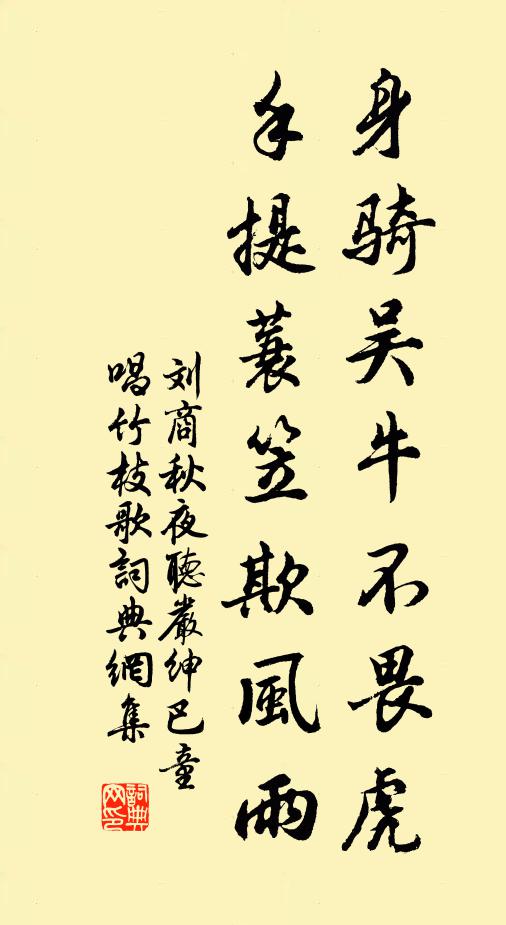 身骑吴牛不畏虎
手提蓑笠欺風雨
刘商秋夜聴嚴紳巴童
唱竹枝歌詞典網集
詞典
网印